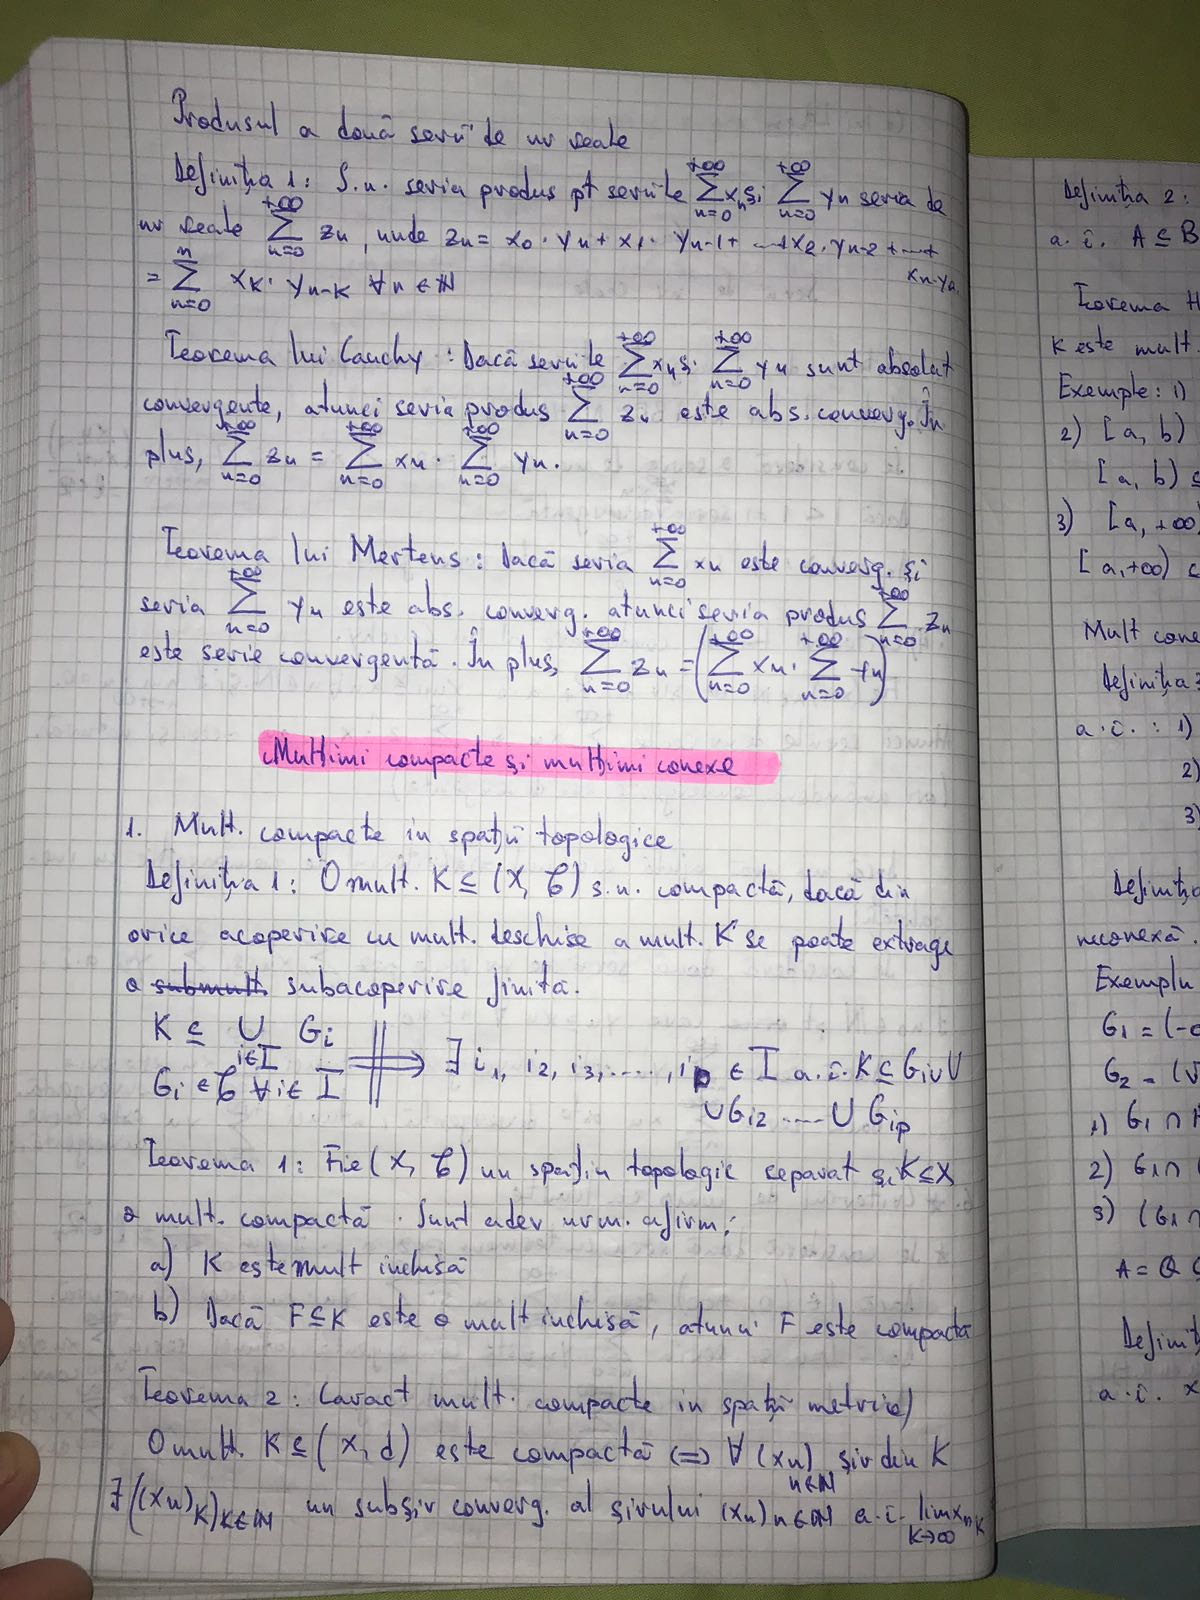 Produsul a două serii de nr reale
Definiția 1: S.n. seria produs pt seriile \sum_{n=0}^{+∞} x_n și \sum_{n=0}^{+∞} y_n seria de
nr reale \sum_{n=0}^{+∞} z_n, unde z_n = x_0 · y_n + x_1 · y_{n-1} + ...+ x_2 · y_{n-2} + ...+ x_n · y_0
= \sum_{n=0}^{n} x_k · y_{n-k} ∀ n ∈ ℕ
Teorema lui Cauchy : Dacă seriile \sum_{n=0}^{+∞} x_n și \sum_{n=0}^{+∞} y_n sunt absolut
convergente, atunci seria produs \sum_{n=0}^{+∞} z_n este abs. converg. În
plus, \sum_{n=0}^{+∞} z_n = \sum_{n=0}^{+∞} x_n · \sum_{n=0}^{+∞} y_n.
Teorema lui Mertens : Dacă seria \sum_{n=0}^{+∞} x_n este converg. și
seria \sum_{n=0}^{+∞} y_n este abs. converg. atunci seria produs \sum_{n=0}^{+∞} z_n
este serie convergentă. În plus, \sum_{n=0}^{+∞} z_n = (\sum_{n=0}^{+∞} x_n · \sum_{n=0}^{+∞} y_n)
Mulțimi compacte și mulțimi conexe
1. Mult. compacte in spații topologice
Definiția 1: O mult. K ⊆ (X, τ) s.n. compactă, dacă din
orice acoperire cu mult. deschise a mult. K se poate extrage
o submult. subacoperire finită.
K ⊆ ∪_{i∈I} G_i
G_i ∈ τ ∀ i ∈ I ⟹ ∃ i_1, i_2, i_3, ...., i_p ∈ I a.î. K ⊆ G_{i1} ∪
∪ G_{i2} .... ∪ G_{ip}
Teorema 1: Fie (X, τ) un spațiu topologic separat și K ⊆ X
o mult. compactă. Sunt adev urm. afirm:
a) K este mult inchisă
b) Dacă F ⊆ K este o mult inchisă, atunci F este compactă
Teorema 2: Caract mult. compacte in spații metrice)
O mult. K ⊆ (X, d) este compactă (=) ∀ (x_n)_{n∈ℕ} șir din K
∃ ((x_n)_k)_{k∈ℕ} un subșir converg. al șirului (x_n)_{n∈ℕ} a.î. lim_{k→∞} x_{nk}
Definiția 2:
a.î. A ⊆ B
Teorema H
K este mult.
Exemple: 1)
2) [a, b)
[a, b)
3) [a, +∞)
[a, +∞)
Mult cone
Definiția 3
a.î. : 1)
2)
3)
Definiția
neconexă.
Exemplu
G_1 = (-
G_2 = (√
1) G_1 ∩
2) G_1 ∩
3) (G_1 ∩
A = Q
Definiț
a.î. x